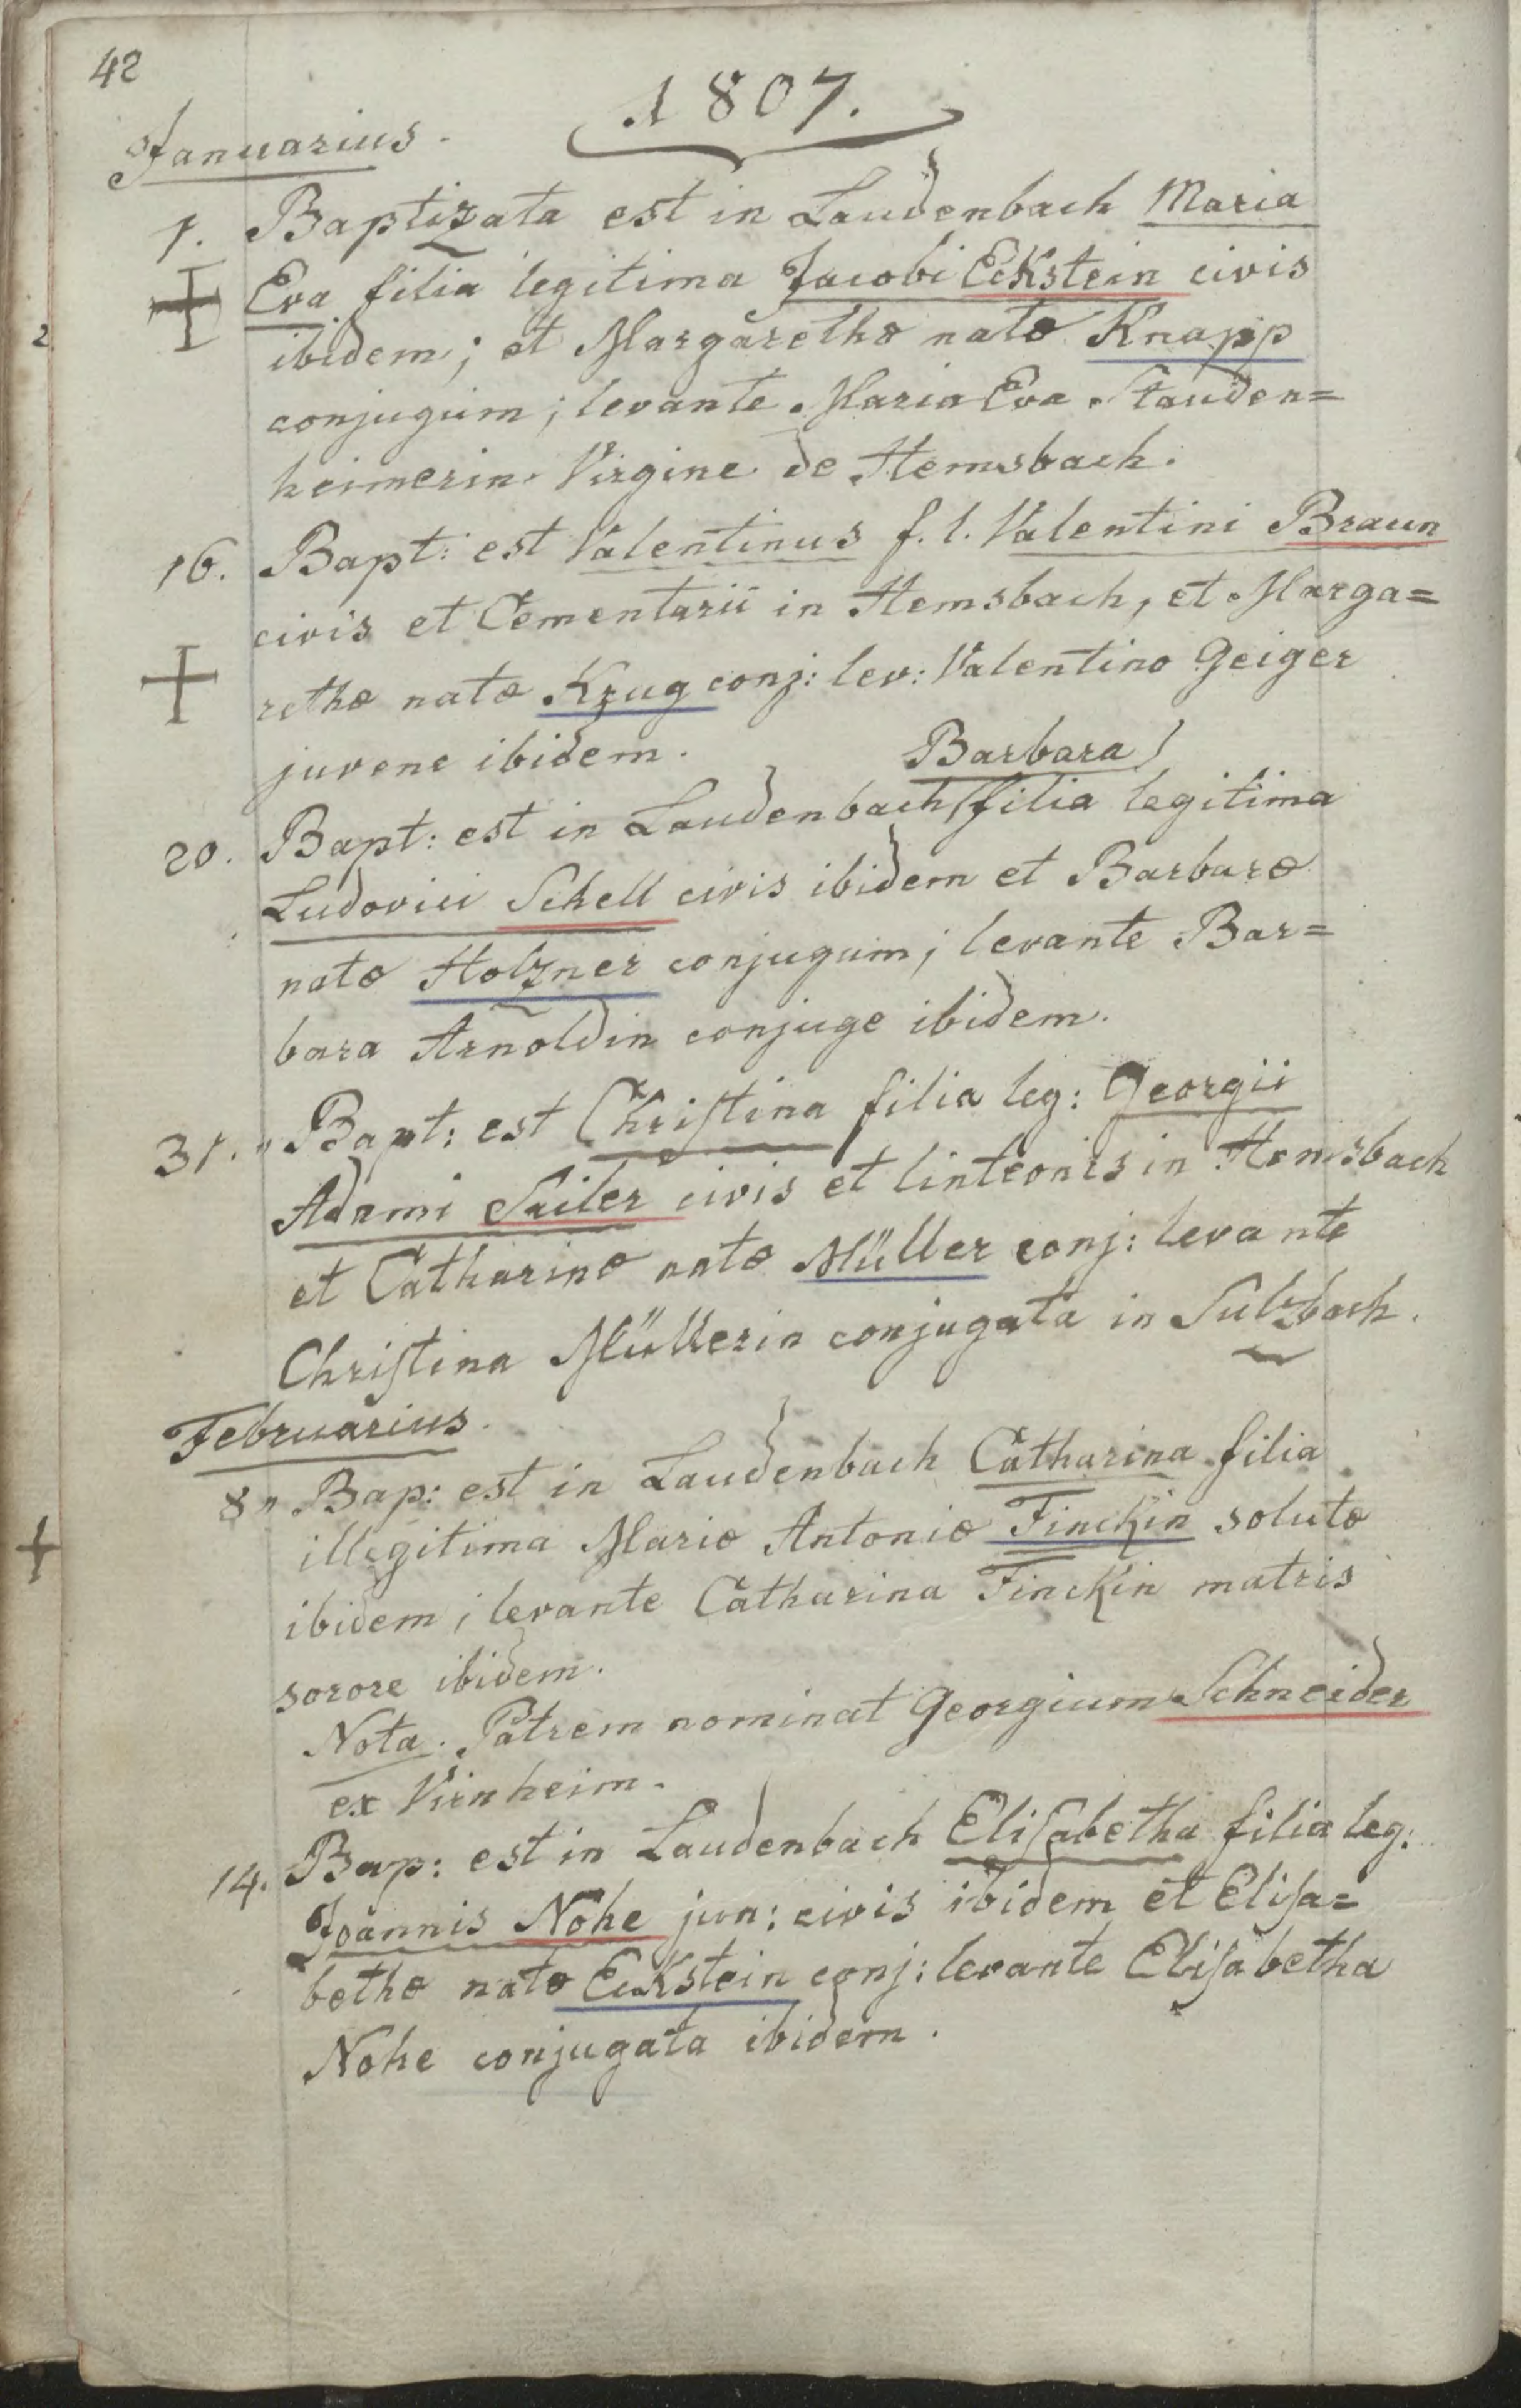 42
1807.
Januarius.
1. Baptizata est in Laudenbach Maria
Eva filia legitima Jacobi Eckstein civis
2
ibidem; et Margarethæ natæ Knapp
conjugum; levante Maria Eva Stauden=
heimerin Virgine de Hemsbach.
16. Bapt: est Valentinus f. l. Valentini Braun
civis et Cementarii in Hemsbach, et Marga=
rethæ natæ Krug conj: lev: Valentino Geiger
juvene ibidem.
Barbara
20. Bapt: est in Laudenbach filia legitima
Ludovici Schell civis ibidem et Barbaræ
natæ Holzner conjugum; levante Bar=
bara Arnoldin conjuge ibidem.
31. Bapt: est Christina filia leg: Georgii
Adami Seiler civis et linteonis in Hemsbach
et Catharinæ natæ Müller conj: levante
Christina Müllerin conjugata in Sulzbach.
Februarius.
8 Bap: est in Laudenbach Catharina filia
illegitima Mariæ Antoniæ Finckin solutæ
ibidem; levante Catharina Finckin matris
sorore ibidem.
Nota. Patrem nominat Georgium Schneider
ex Virnheim.
14. Bap: est in Laudenbach Elisabetha filia leg:
Joannis Nohe jun: civis ibidem et Elisa=
bethæ natæ Eckstein conj: levante Elisabetha
Nohe conjugata ibidem.